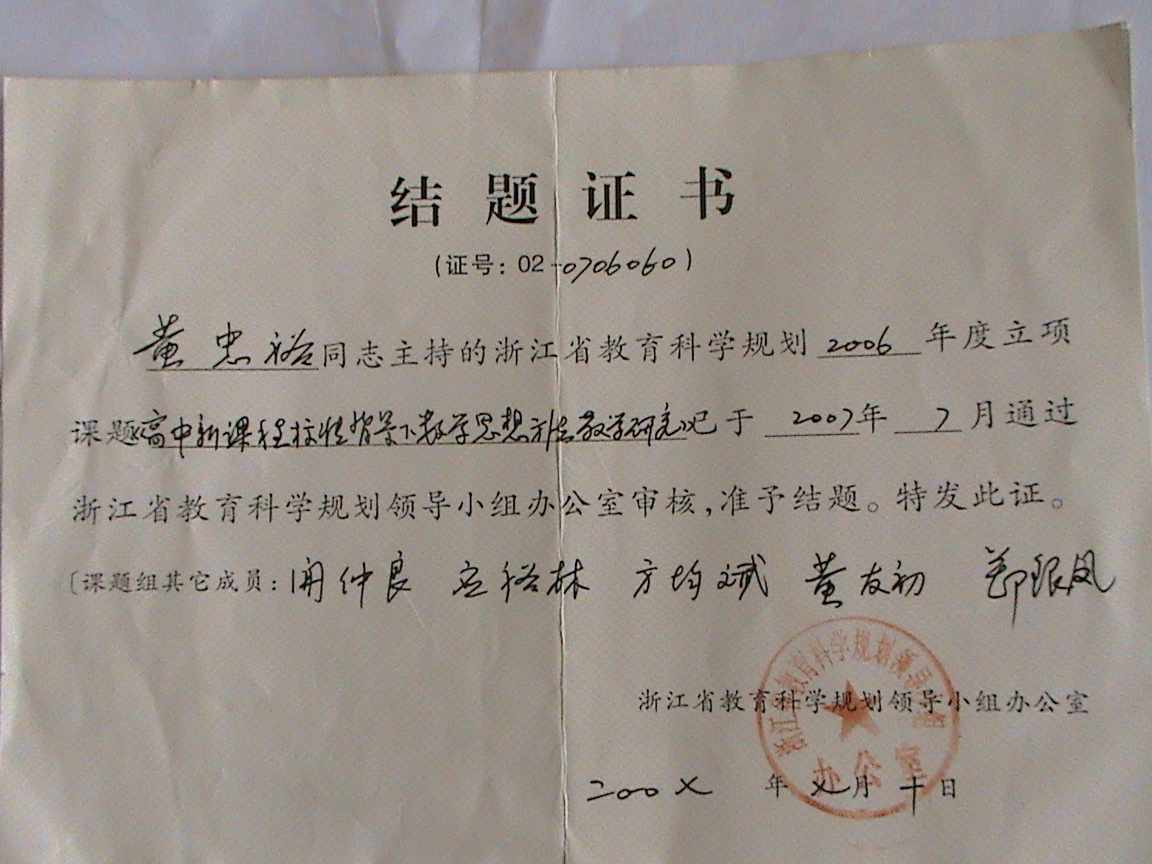 结题证书
(证号：02-0706060)
黄忠裕同志主持的浙江省教育科学规划 2006 年度立项
课题高中新课程 背景下数学思想方法教学研究 已于 2007年 7 月通过
浙江省教育科学规划领导小组办公室审核，准予结题。特发此证。
〔课题组其它成员： 仲良 裕林 方均斌 黄友初 郑银凤
浙江省教育科学规划领导小组办公室
浙江省教育科学规划领导小组
办公室
二00 年 月 十日